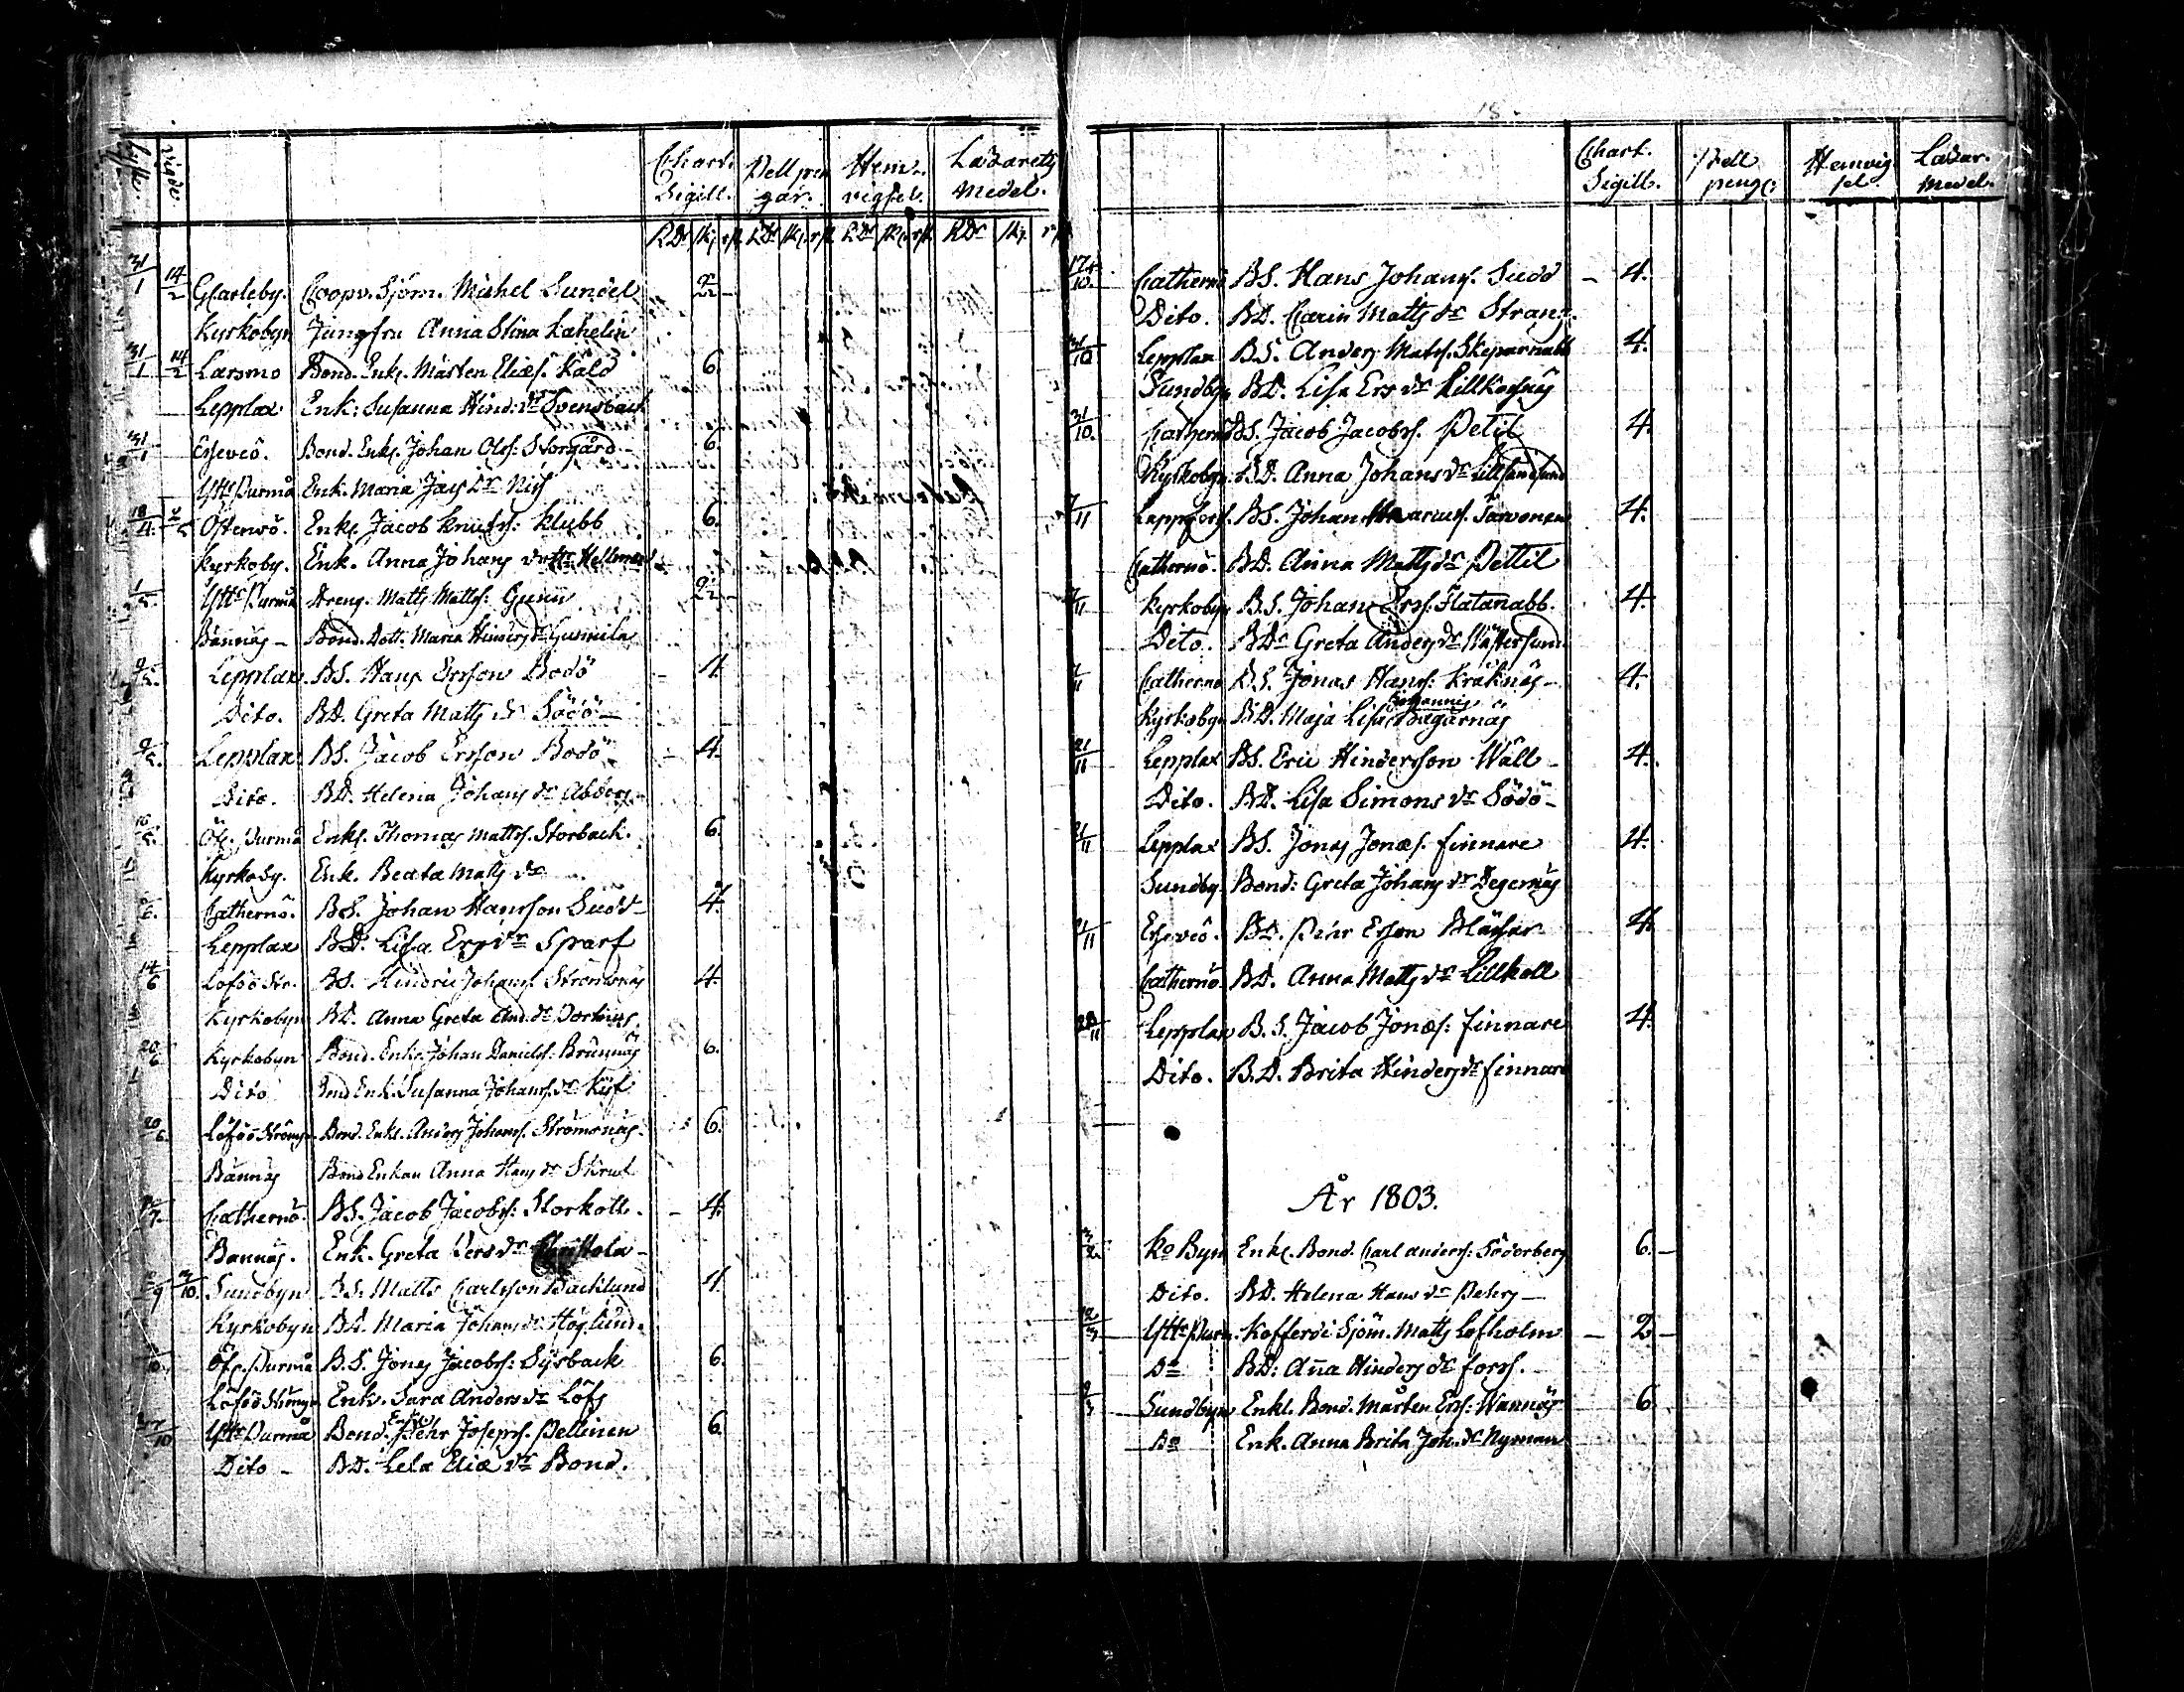 Lyste. Vigde. Chart. Sigill. Pell pen gar. Hem vigsel. Lazaretts Medel.
RD sk rst RD sk rst RD sk rst RD sk rst
31/1 14/2 Glarleby. Coopv. Sjöm. Michel Sundel 2
Kyrkobyn Jungfru Anna Stina Kahelin
31/1 14/2 Larsmo Bond. Enkl. Mårten Eliæs. Käld 6.
Lepplax Enk: Susanna Hind: dr Svensbäck
31/1 Essevö. Bond. Enkl. Johan Olss: Storgård 6.
Ytte Purmå Enk. Maria Jacs dr
18/4 Östensö. Enkl. Jacob Knutss: Klubb 6.
Kyrkoby. Enk. Anna Johans dr Hellman
Ytte Purmå Dreng. Matts Mattss: Gunn 2
Bännäs Bond. Dott. Maria Hinders dr Gunnila
9/5. Lepplax. BS. Hans Ersson Bodö 4.
Dito. BD. Greta Matts dr Södö
9/5. Lepplax BS. Jacob Ersson Bodö 4.
Dito. BD. Helena Johans dr
16/5. Öfr. Purmå Enkl. Thomas Mattss. Storback. 6.
Kyrkoby. Enk. Beata Matts dr
Cathernö. BS. Johan Hansson Sudd 4.
Lepplax BD. Lisa Ers dr Sparf
14/6 Löföö Str. BS. Hindric Johans. Strömsnäs 4.
Kyrkobyn BD. Anna Greta And. dr
20/6 Kyrkobyn Bond. Enkl. Johan Danielss: Brännäs 6.
Dito Bnd Enk. Susanna Johanss. dr
20/6. Löföö Strömsn. Bond. Enkl. Anders Johanss. Strömsnäs. 6.
Bännäs Bond Enkan Anna Hans dr
Cathernö. BS. Jacob Jacobss: Storkolt. 4.
Bännäs. Enk. Greta Pers dr
Sundbyn BS. Matts Carlsson Backlund 4.
Kyrkobyn BD. Maria Johans dr Höglund.
Öfr. Purmå B.S. Jonas Jacobss: Sysback 6.
Enk. Sara Anders dr Löfs
Ytte Purmå Bond. Enkl. Pehr Josephs. Pellinen 6.
Dito BD. Lela Eliæ dr Bond.
18.
Chart. Sigill. Pell peng: Hemvig sel. Lazar. Medel.
17/10. Cathernö BS. Hans Johans. Sudd 4.
Dito. BD. Carin Matts dr Strang.
31/10 Lepplax BS. Anders Matss. Skeparnabb 4.
Sundbyn BD. Lisa Ers dr
31/10. Cathernö BS. Jacob Jacobs. Petil 4.
Kyrkobyn. BD. Anna Johans dr
7/11 Lappfors. BS. Johan Marcuss. Tarvonen 4.
Cathernö. BD. Anna Matts dr Pettil
7/11 Kyrkobyn BS. Johan Erss. Flatanabb. 4.
Dito. BD Greta Anders dr Wästersund.
Cathernö BS. Jonas Hanss: Kråknäs 4.
Kyrkobyn BD. Maja Lisa Johannis Bagarnäs
21/11 Lepplax BS. Eric Hindersson Wall 4.
Dito. BD. Lisa Simons dr Södö
21/11 Lepplax BS. Jonas Jonæs. Finnare 4.
Sundby. Bond: Greta Johans dr Degernäs
21/11 Essevö. BD. Pehr Erson Bläyfar 4.
Cathernö. BD. Anna Matts dr Lillkall
28/11 Lepplax B.S. Jacob Jonæs: Finnare 4.
Dito. B.D. Brita Hinders dr Finnare
År 1803.
Ko Byn Enkl. Bond. Carl Anders: Söderberg 6.
Dito. BD. Helena Hans dr Pehrs
Ytte Purm. Kofferdi Sjöm. Matts Lofholm 2
Do BD: Aña Hinders dr Forss.
Sundbyn Enkl. Bond. Mårten Ers: Wannäs 6
Do Enk. Anna Brita Joh. dr Nyman